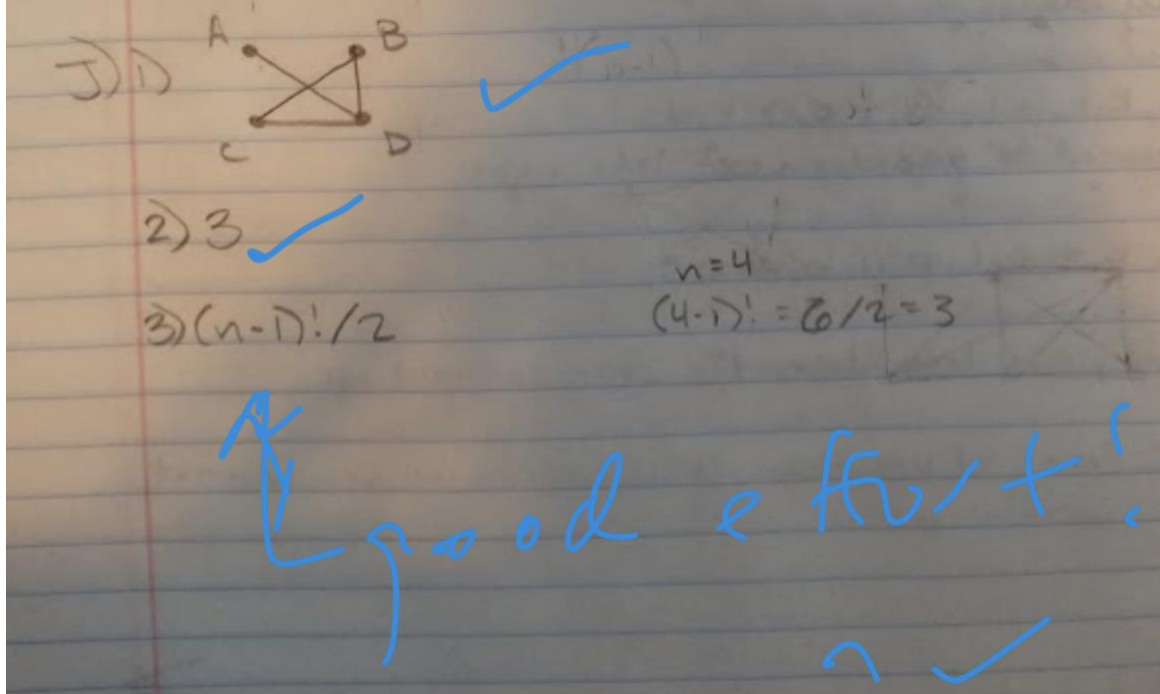 J) 1) A B
C D
2) 3
n=4
3) (n-1)!/2 (4-1)! = 6/2 = 3
good effort!